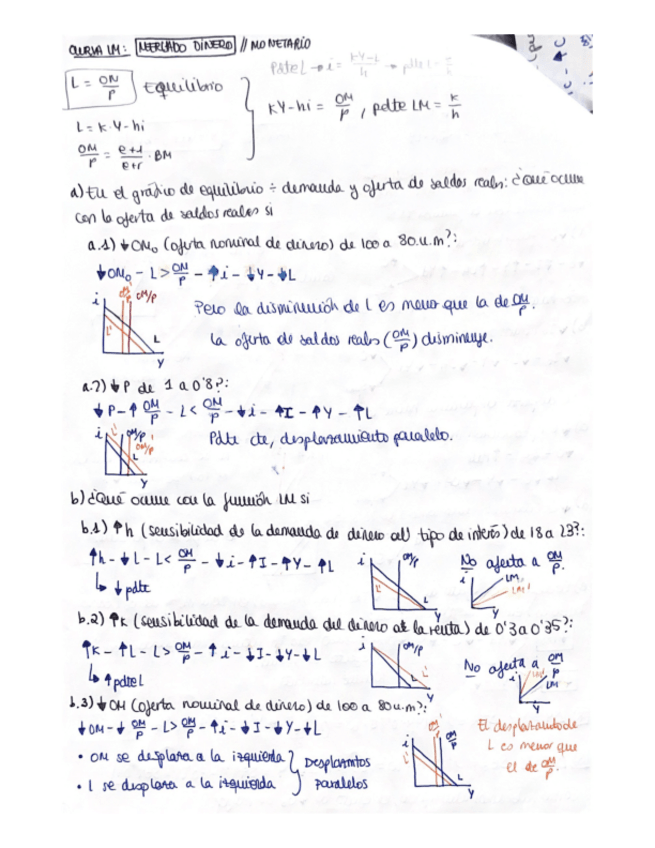 CURVA LM: MERCADO DINERO // MONETARIO
L = OM/P Equilibrio
L = k·Y-hi
KY-hi = OM/P, pdte LM = k/h
OM/P = e+1/e+r · BM
a) En el gráfico de equilibrio ÷ demanda y oferta de saldos reales: ¿Qué ocurre
con la oferta de saldos reales si
a.1) ↓OM₀ (oferta nominal de dinero) de 100 a 80.u.m?:
↓OM₀ - L > OM/P - ↑i - ↓Y - ↓L
i OM/P L' L Y
Pero la disminución de L es menor que la de OM/P.
La oferta de saldos reales (OM/P) disminuye.
a.2) ↓P de 1 a 0'8?:
↓P - ↑ OM/P - L < OM/P - ↓i - ↑I - ↑Y - ↑L
i L' OM/P OM/P' L Y
Pdte cte, desplazamiento paralelo.
b) ¿Qué ocurre con la función LM si
b.1) ↑h (sensibilidad de la demanda de dinero al tipo de interés) de 18 a 23?:
↑h - ↓L - L < OM/P - ↓i - ↑I - ↑Y - ↑L
↓pdte
i OM/P L' L Y
No afecta a OM/P.
i LM LM' Y
b.2) ↑K (sensibilidad de la demanda del dinero a la renta) de 0'3 a 0'35?:
↑K - ↑L - L > OM/P - ↑i - ↓I - ↓Y - ↓L
↑pdte L
i OM/P L' L Y
No afecta a OM/P
i LM' LM Y
b.3) ↓OM (oferta nominal de dinero) de 100 a 80 u.m?:
↓OM - ↓ OM/P - L > OM/P - ↑i - ↓I - ↓Y - ↓L
• OM se desplaza a la izquierda
• L se desplaza a la izquierda
Desplazamtos
Paralelos
i OM/P L Y
El desplazamto de
L es menor que
el de OM/P.